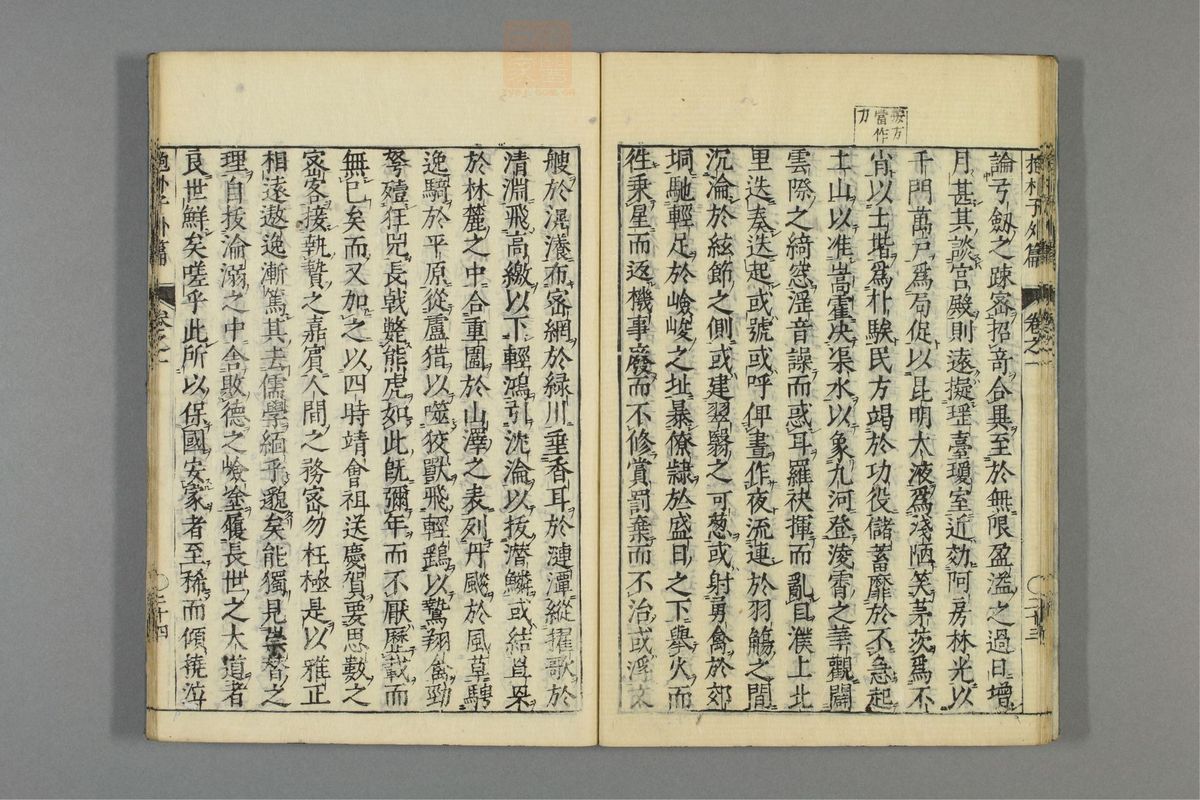 抱朴子外篇 卷之一 〇二十三
按方
當作
力
論弓劔之踈宻招竒合異至於無限盈溢之過日增
月甚其談宫殿則遠擬瑶臺瓊室近効阿房林光以
千門萬户爲局促以昆明太液爲淺陋笑茅茨爲不
肖以土堦爲朴騃民方竭於功役儲蓄靡於不急起
土山以准嵩霍决渠水以象九河登淩霄之華觀闢
雲際之綺窓淫音譟而惑耳羅袂揮而亂目濮上北
里迭奏迭起或號或呼俾晝作夜流連於羽觴之間
沉淪於絃節之側或建翠翳之可葱或射勇禽於郊
坰馳輕足於嶮峻之址暴僚隷於盛日之下舉火而
徃乗星而返機事廢而不修賞罰棄而不治或浮文
艘於滉瀁布宻網於緑川垂香耳於漣潭縱擢歌於
清淵飛高繳以下輕鴻引沈淪以抜濳鱗或結罝罘
於林麓之中合重圍於山澤之表列丹飈於風草騁
逸騎於平原從盧猎以噬狡獸飛輕鷂以鷙翔禽勁
弩殪狂兕長戟斃熊虎如此旣彌年而不厭歷載而
無巳矣而又加之以四時靖會祖送慶賀要思數之
宻客接執贄之嘉賓人間之務宻勿枉極是以雅正
相遠遨逸漸篤其去儒學緬乎邈矣能獨見崇替之
理自抜淪溺之中舍敗德之嶮塗履長世之大道者
良世鮮矣嗟乎此所以保國安家者至稀而傾撓泣
抱朴子外篇 卷之一 〇二十四